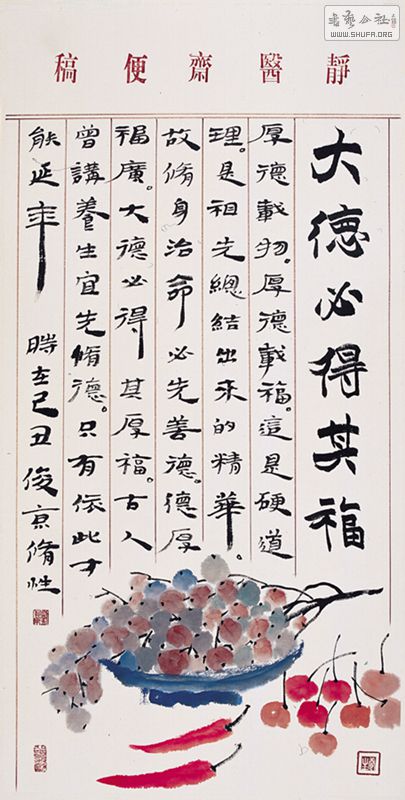 书艺公社
WWW.SHUFA.ORG
靜醫齋便稿
大德必得其福
厚德載物。厚德載福。這是硬道
理。是祖先總結出來的精華。
故脩身治命必先善德。德厚
福廣。大德必得其厚福。古人
曾講養生宜先脩德。只有依此才
能延年
時在己丑俊京脩性